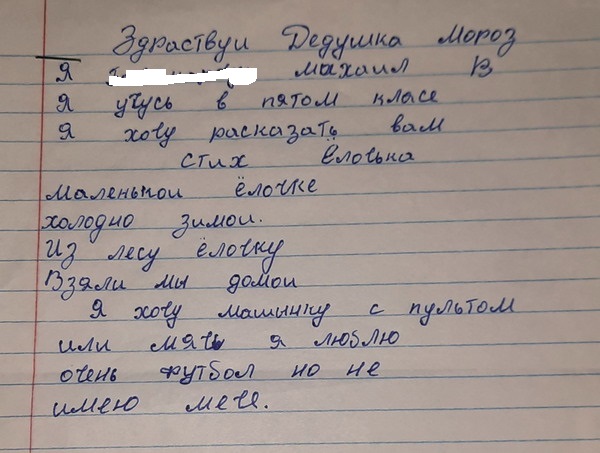 Здраствуи Дедушка Мороз
Я Михаил В
Я учусь в пятом класе
Я хочу расказать вам
стих Ёлочька
Маленькои ёлочке
холодно зимои.
Из лесу ёлочку
Взяли мы домои
Я хочу машынку с пультом
или мячь я люблю
очень футбол но не
имею мече.